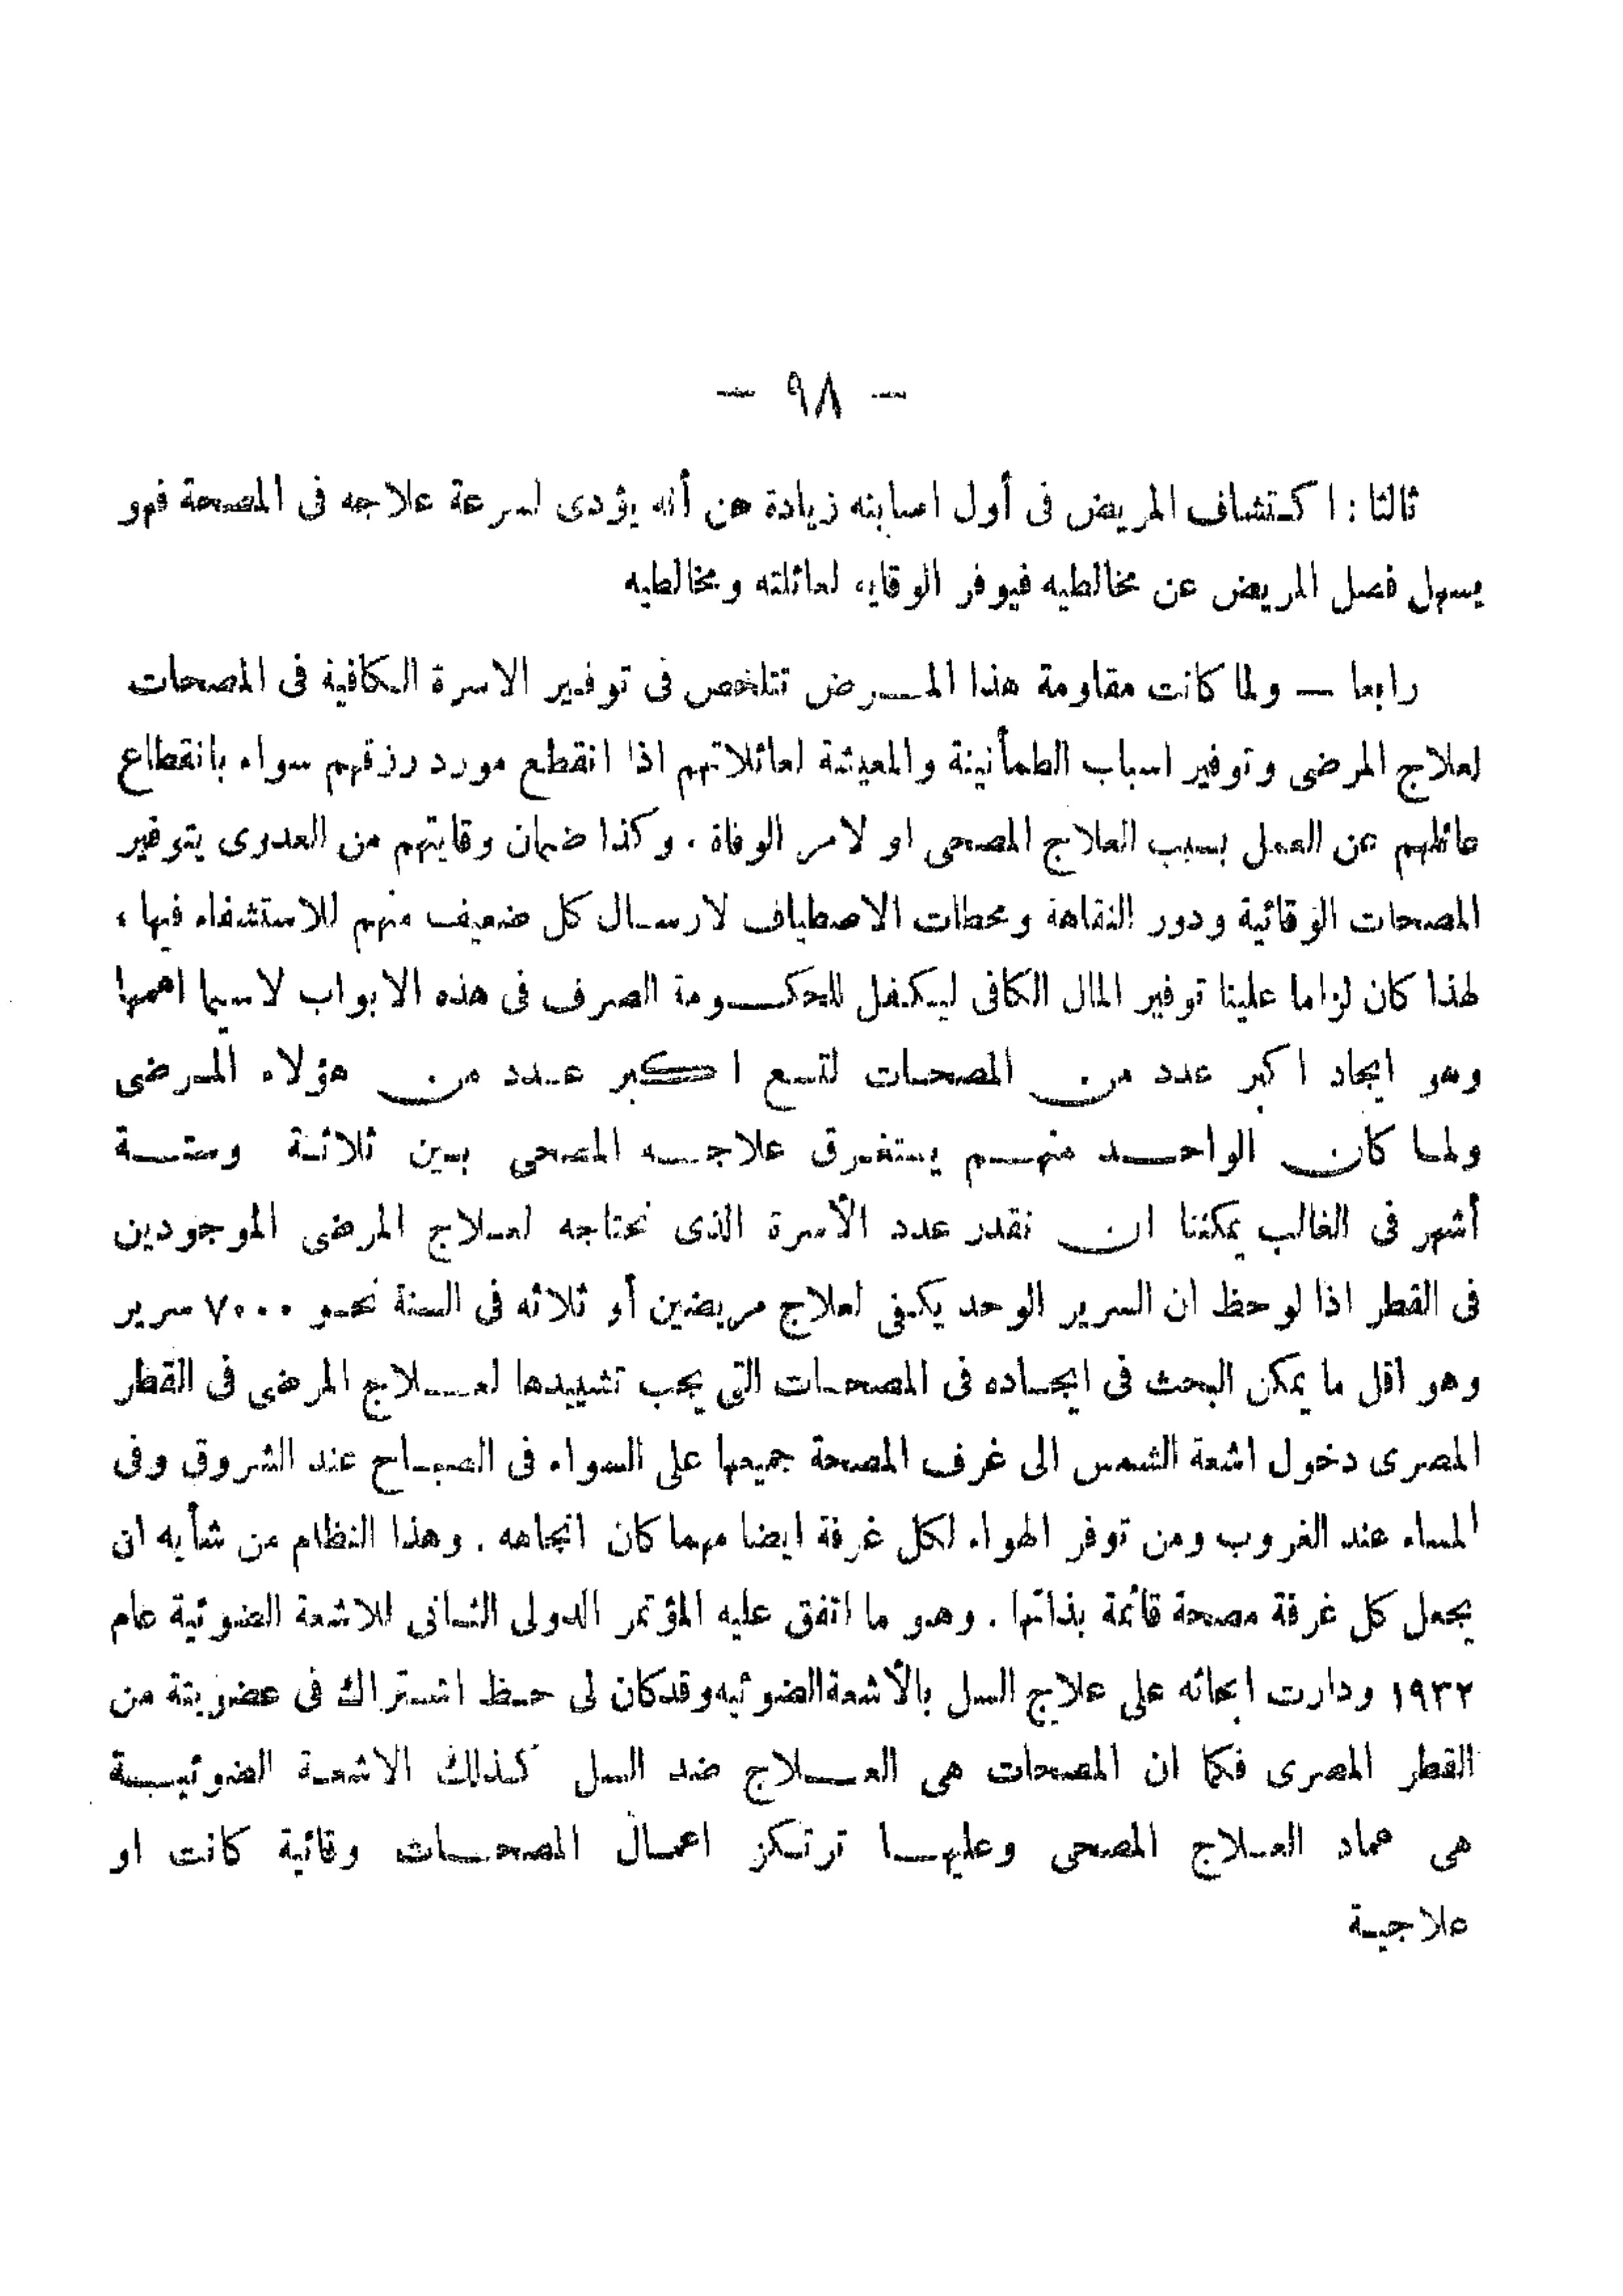 — ٩٨ —
ثالثا : اكتشاف المريض فى أول اصابته زيادة عن أنه يؤدى لسرعة علاجه فى المصحة فهو
يسهل فصل المريض عن مخالطيه فيوفر الوقايه لعائلته ومخالطيه
رابعا — ولما كانت مقاومة هذا المرض تتلخص فى توفير الاسرة الكافية فى المصحات
لعلاج المرضى وتوفير اسباب الطمأنينة والمعيشة لعائلاتهم اذا انقطع مورد رزقهم سواء بانقطاع
عائلهم عن العمل بسبب العلاج المصحى او لامر الوفاة . وكذا ضمان وقايتهم من العدوى بتوفير
المصحات الوقائية ودور النقاهة ومحطات الاصطياف لارسال كل ضعيف منهم للاستشفاء فيها ،
لهذا كان لزاما علينا توفير المال الكافى ليكفل للحكومة الصرف فى هذه الابواب لاسيما اهمها
وهو ايجاد اكبر عدد من المصحات لتسع اكبر عدد من هؤلاء المرضى
ولما كان الواحد منهم يستغرق علاجه المصحى بين ثلاثة وستة
أشهر فى الغالب يمكننا ان نقدر عدد الأسرة الذى نحتاجه لعلاج المرضى الموجودين
فى القطر اذا لوحظ ان السرير الوحد يكفى لعلاج مريضين أو ثلاثه فى السنة نحو ٧٠٠٠ سرير
وهو اقل ما يمكن البحث فى ايجاده فى المصحات التى يجب تشييدها لعلاج المرضى فى القطر
المصرى دخول اشعة الشمس الى غرف المصحة جميعها على السواء فى الصباح عند الشروق وفى
المساء عند الغروب ومن توفر الهواء لكل غرفة ايضا مهما كان اتجاهه . وهذا النظام من شأنه ان
يجعل كل غرفة مصحة قائمة بذاتها . وهو ما اتفق عليه المؤتمر الدولى الثانى للاشعة الضوئية عام
١٩٣٢ ودارت ابحاثه على علاج السل بالأشعة الضوئيه وقد كان لى حظ اشتراك فى عضويته من
القطر المصرى فكما ان المصحات هى العلاج ضد السل كذلك الاشعة الضوئيية
هى عماد العلاج المصحى وعليها ترتكز اعمال المصحات وقائية كانت او
علاجية